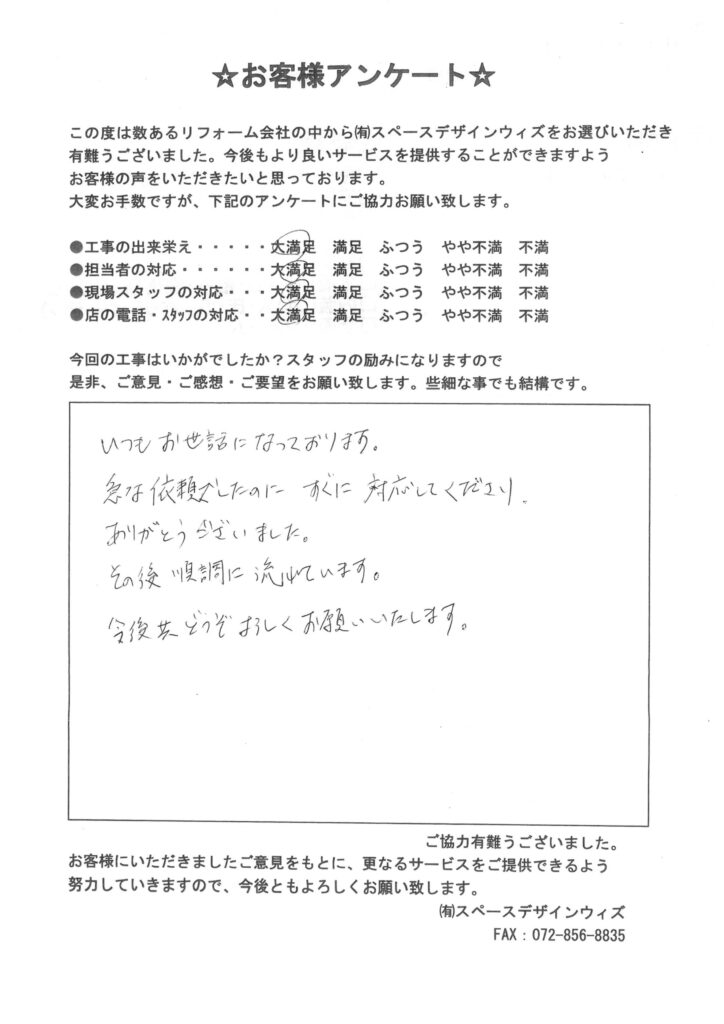 ☆お客様アンケート☆
この度は数あるリフォーム会社の中から㈲スペースデザインウィズをお選びいただき
有難うございました。今後もより良いサービスを提供することができますよう
お客様の声をいただきたいと思っております。
大変お手数ですが、下記のアンケートにご協力お願い致します。
●工事の出来栄え・・・・・大満足 満足 ふつう やや不満 不満
●担当者の対応・・・・・・大満足 満足 ふつう やや不満 不満
●現場スタッフの対応・・・大満足 満足 ふつう やや不満 不満
●店の電話・ｽﾀｯﾌの対応・・大満足 満足 ふつう やや不満 不満
今回の工事はいかがでしたか？スタッフの励みになりますので
是非、ご意見・ご感想・ご要望をお願い致します。些細な事でも結構です。
いつもお世話になっております。
急な依頼でしたのに すぐに 対応してくださり、
ありがとうございました。
その後 順調に 流れています。
今後共 どうぞ よろしくお願いいたします。
ご協力有難うございました。
お客様にいただきましたご意見をもとに、更なるサービスをご提供できるよう
努力していきますので、今後ともよろしくお願い致します。
㈲スペースデザインウィズ
FAX：072-856-8835